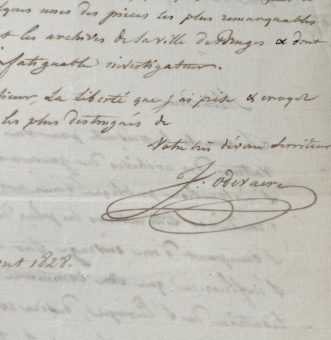 unes des pièces les plus remarquables
les archives de la ville de Bruges & dont
infatiguable investigateur.
sieur, La liberté que j'ai prise & envoyer
les plus distingués de
Votre très dévoué Serviteur
J. Odevaere
out 1828.